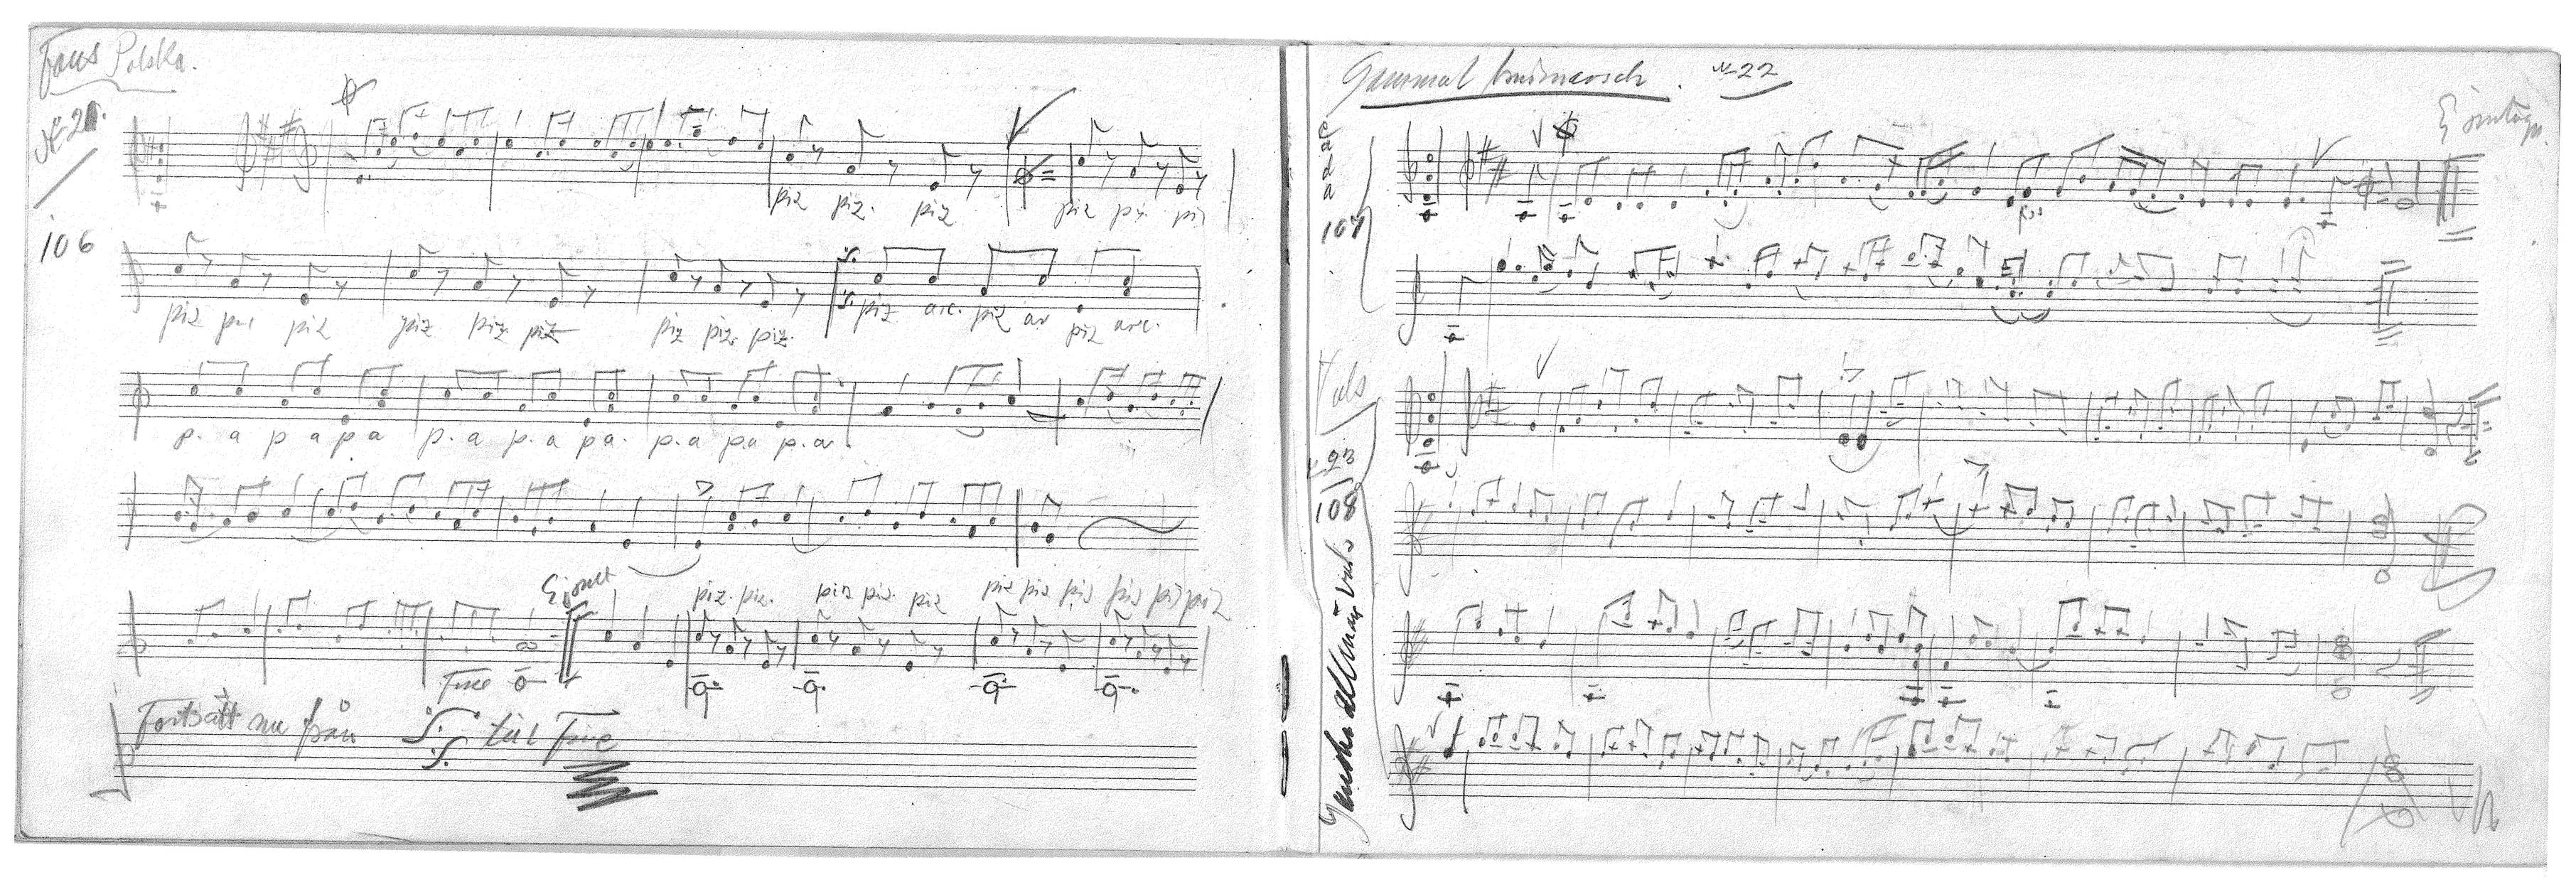 Fans Polska.
№ 21.
piz piz. piz piz piz. piz
106
piz piz piz piz piz. piz piz piz. piz. piz arc. piz ar piz arc.
p. a p a p a p. a p. a p a. p. a p a p. a.
piz. piz. piz piz. piz piz piz piz piz piz piz
Fine
Fortsätt nu från till Fine
Gammal brudmarsch. № 22
a d a e
107
Vals
23
108